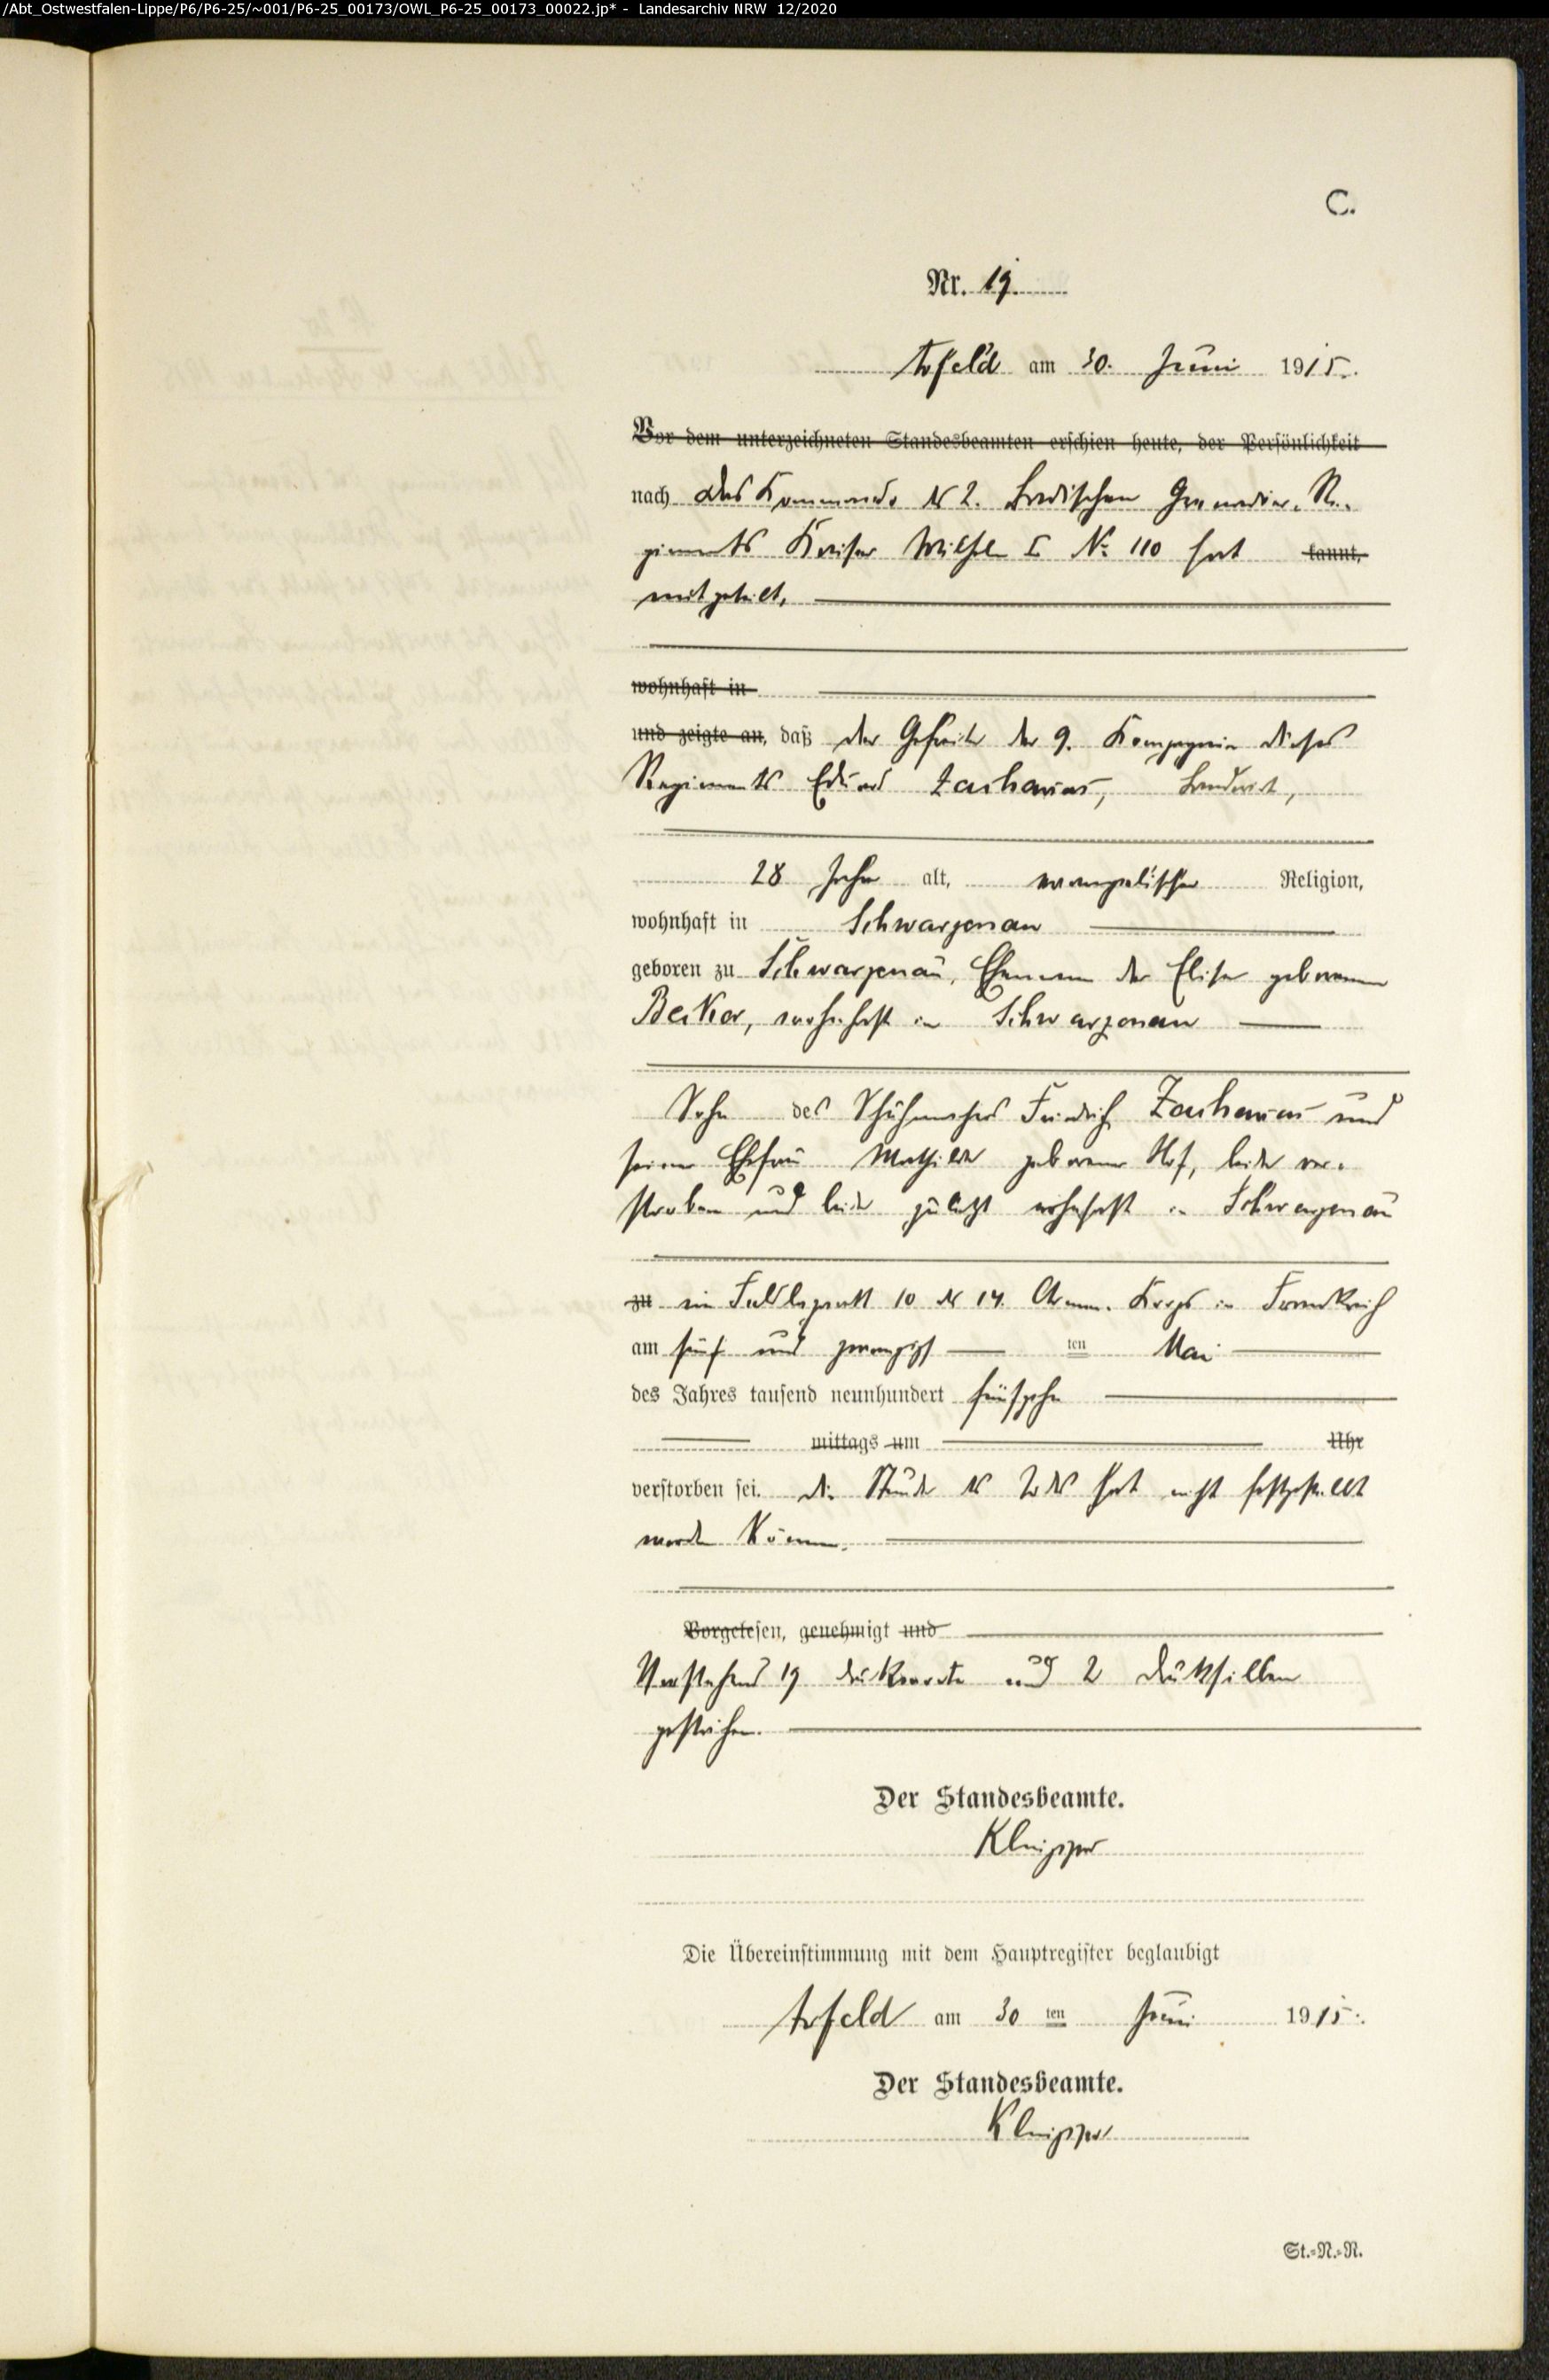 /Abt_Ostwestfalen-Lippe/P6/P6-25/~001/P6-25_00173/OWL_P6-25_00173_00022.jp* - Landesarchiv NRW 12/2020
C.
Nr. 19.
Arfeld am 30. Juni 1915.
Vor dem unterzeichneten Standesbeamten erschien heute, der Persönlichkeit
nach Das Kommando des 2. Badischen Grenadier-Re-
giments Kaiser Wilhelm I No 110 hat kannt,
mitgeteilt,
wohnhaft in
und zeigte an, daß der Gefreite der 9. Kompagnie dieses
Regiments Eduard Zacharias, Landwirt,
28 Jahre alt, evangelischer Religion,
wohnhaft in Schwarzenau
geboren zu Schwarzenau, Ehemann der Elise geborenen
Becker, wohnhaft in Schwarzenau
Sohn des Schuhmachers Friedrich Zacharias und
seiner Ehefrau Mathilde geborene Hof, beide ver-
storben und beide zuletzt wohnhaft in Schwarzenau
zu im Feldlazarett 10 des 14. Armee-Korps in Frankreich
am fünf und zwanzigst ten Mai
des Jahres tausend neunhundert fünfzehn
mittags um Uhr
verstorben sei. die Stunde des Todes hat nicht festgestellt
werden können.
Vorgelesen, genehmigt und
Vorstehend 19 Druckworte und 2 Drucksilben
gestrichen.
Der Standesbeamte.
Die Übereinstimmung mit dem Hauptregister beglaubigt
Arfeld am 30 ten Juni 1915.
Der Standesbeamte.
St.-N.-R.